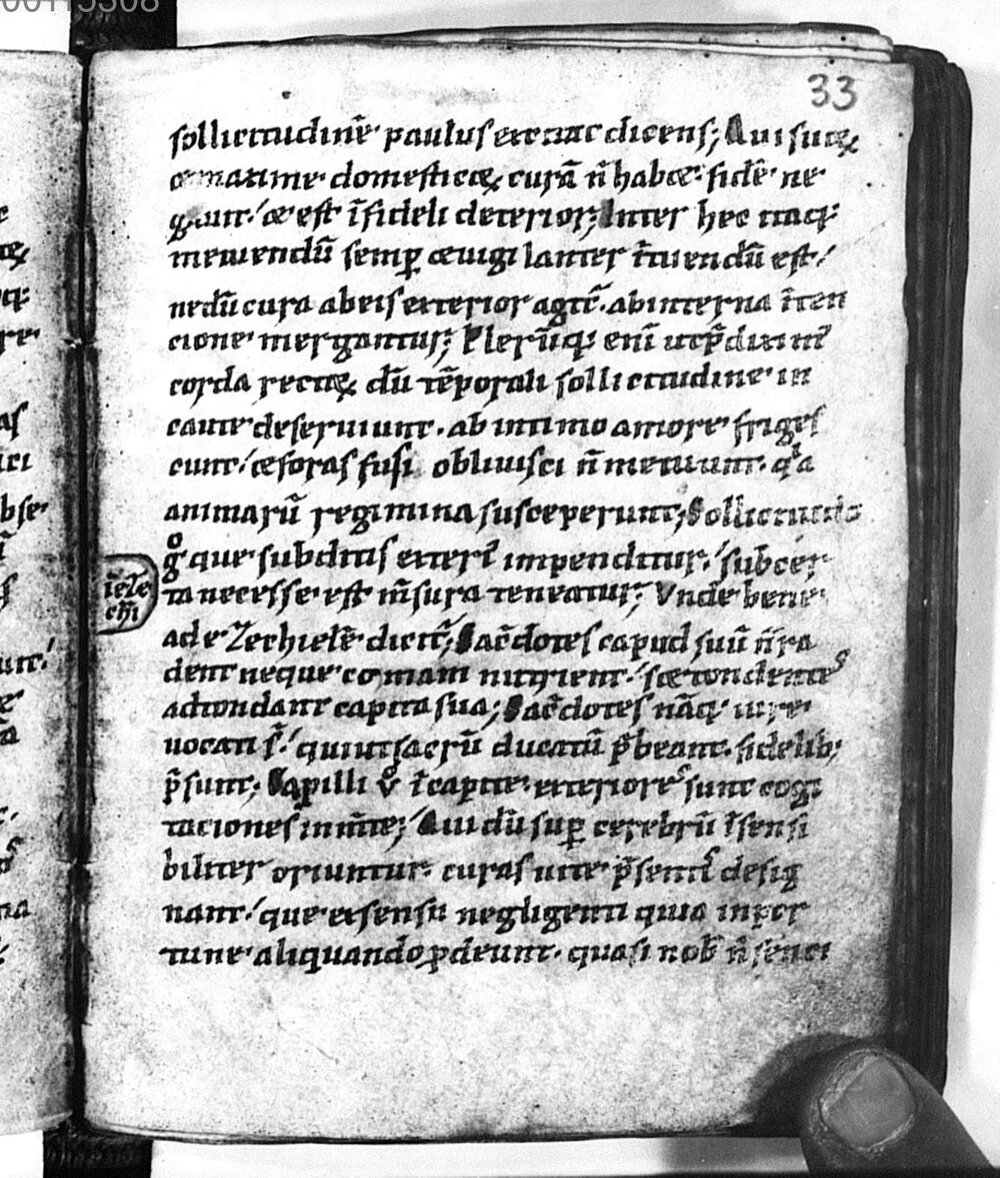 00115308
33
sollicitudinē paulus excitat dicens; Qui suoꝝ
& maxime domesticoꝝ curā ñ habet. fidē ne
gauit. & est īfideli deterior; Inter hec itaq:
metuendū semꝑ & uigilanter ītuendū est.
nedū cura ab eis exterior agit̄. ab interna īten
cione mergantur; Pleꝛūq: enī ut p̄diximꝰ
corda rectoꝝ dū tēporali sollicitudine in
caute deseruiunt. ab intimo amore friges
cunt. & foras fusi obliuisci ñ metuunt. qͥa
animarū regimina susceperunt; Sollicitudo
gͦ que subditis exteriꝰ impenditur. sub cer
ta necesse est m̄sura teneatur; Vnde bene
ad eZechielē dicit̄; Sac̄dotes capud suū ñ ra
dent neque comam nutrient. sꝫ tondentes
adtondant capita sua; Sac̄dotes nāq: iure
uocati sͭ. qui ut sacrū ducatū p̄beant. fidelibꝫ
p̄sunt; Capilli ũ ī capite. exteriores sunt cogi
taciones in m̄te; Qui dū suꝑ cerebrū īsensi
biliter oriuntur. curas uite p̄sentis desig
nant. que ex sensu negligenti quia inpor
tune aliquando ꝓdeunt. quasi nob̄ ñ senci
iezechi